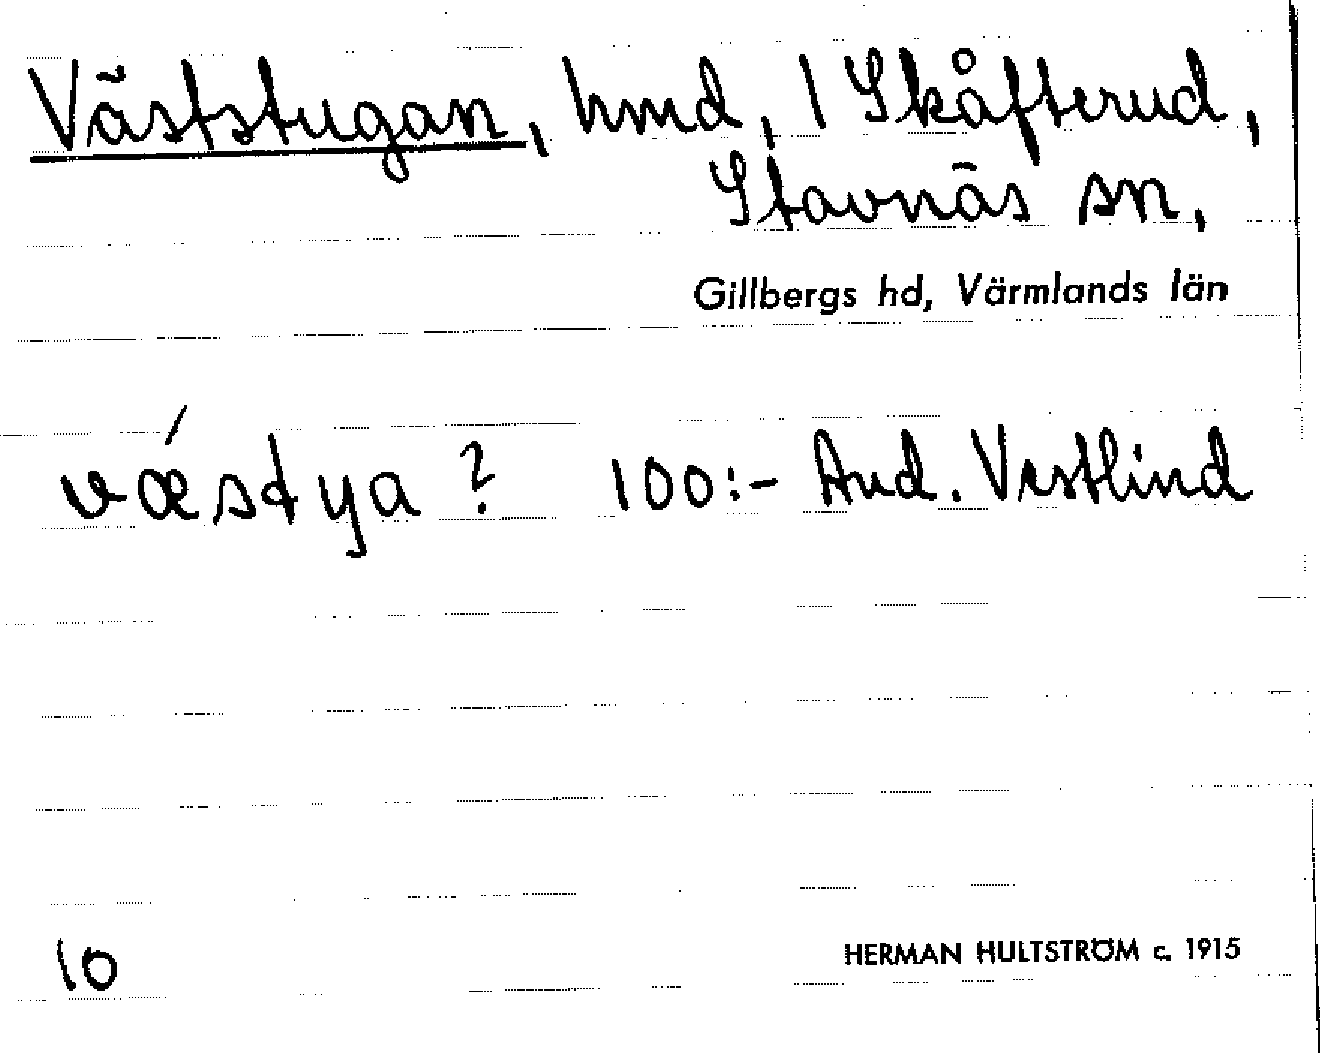 Väststugan, hmd, 1 Skåfterud,
Stavnäs sn,
Gillbergs hd, Värmlands län
vǽstya ? 100:- And. Vestlind
10
HERMAN HULTSTRÖM c. 1915